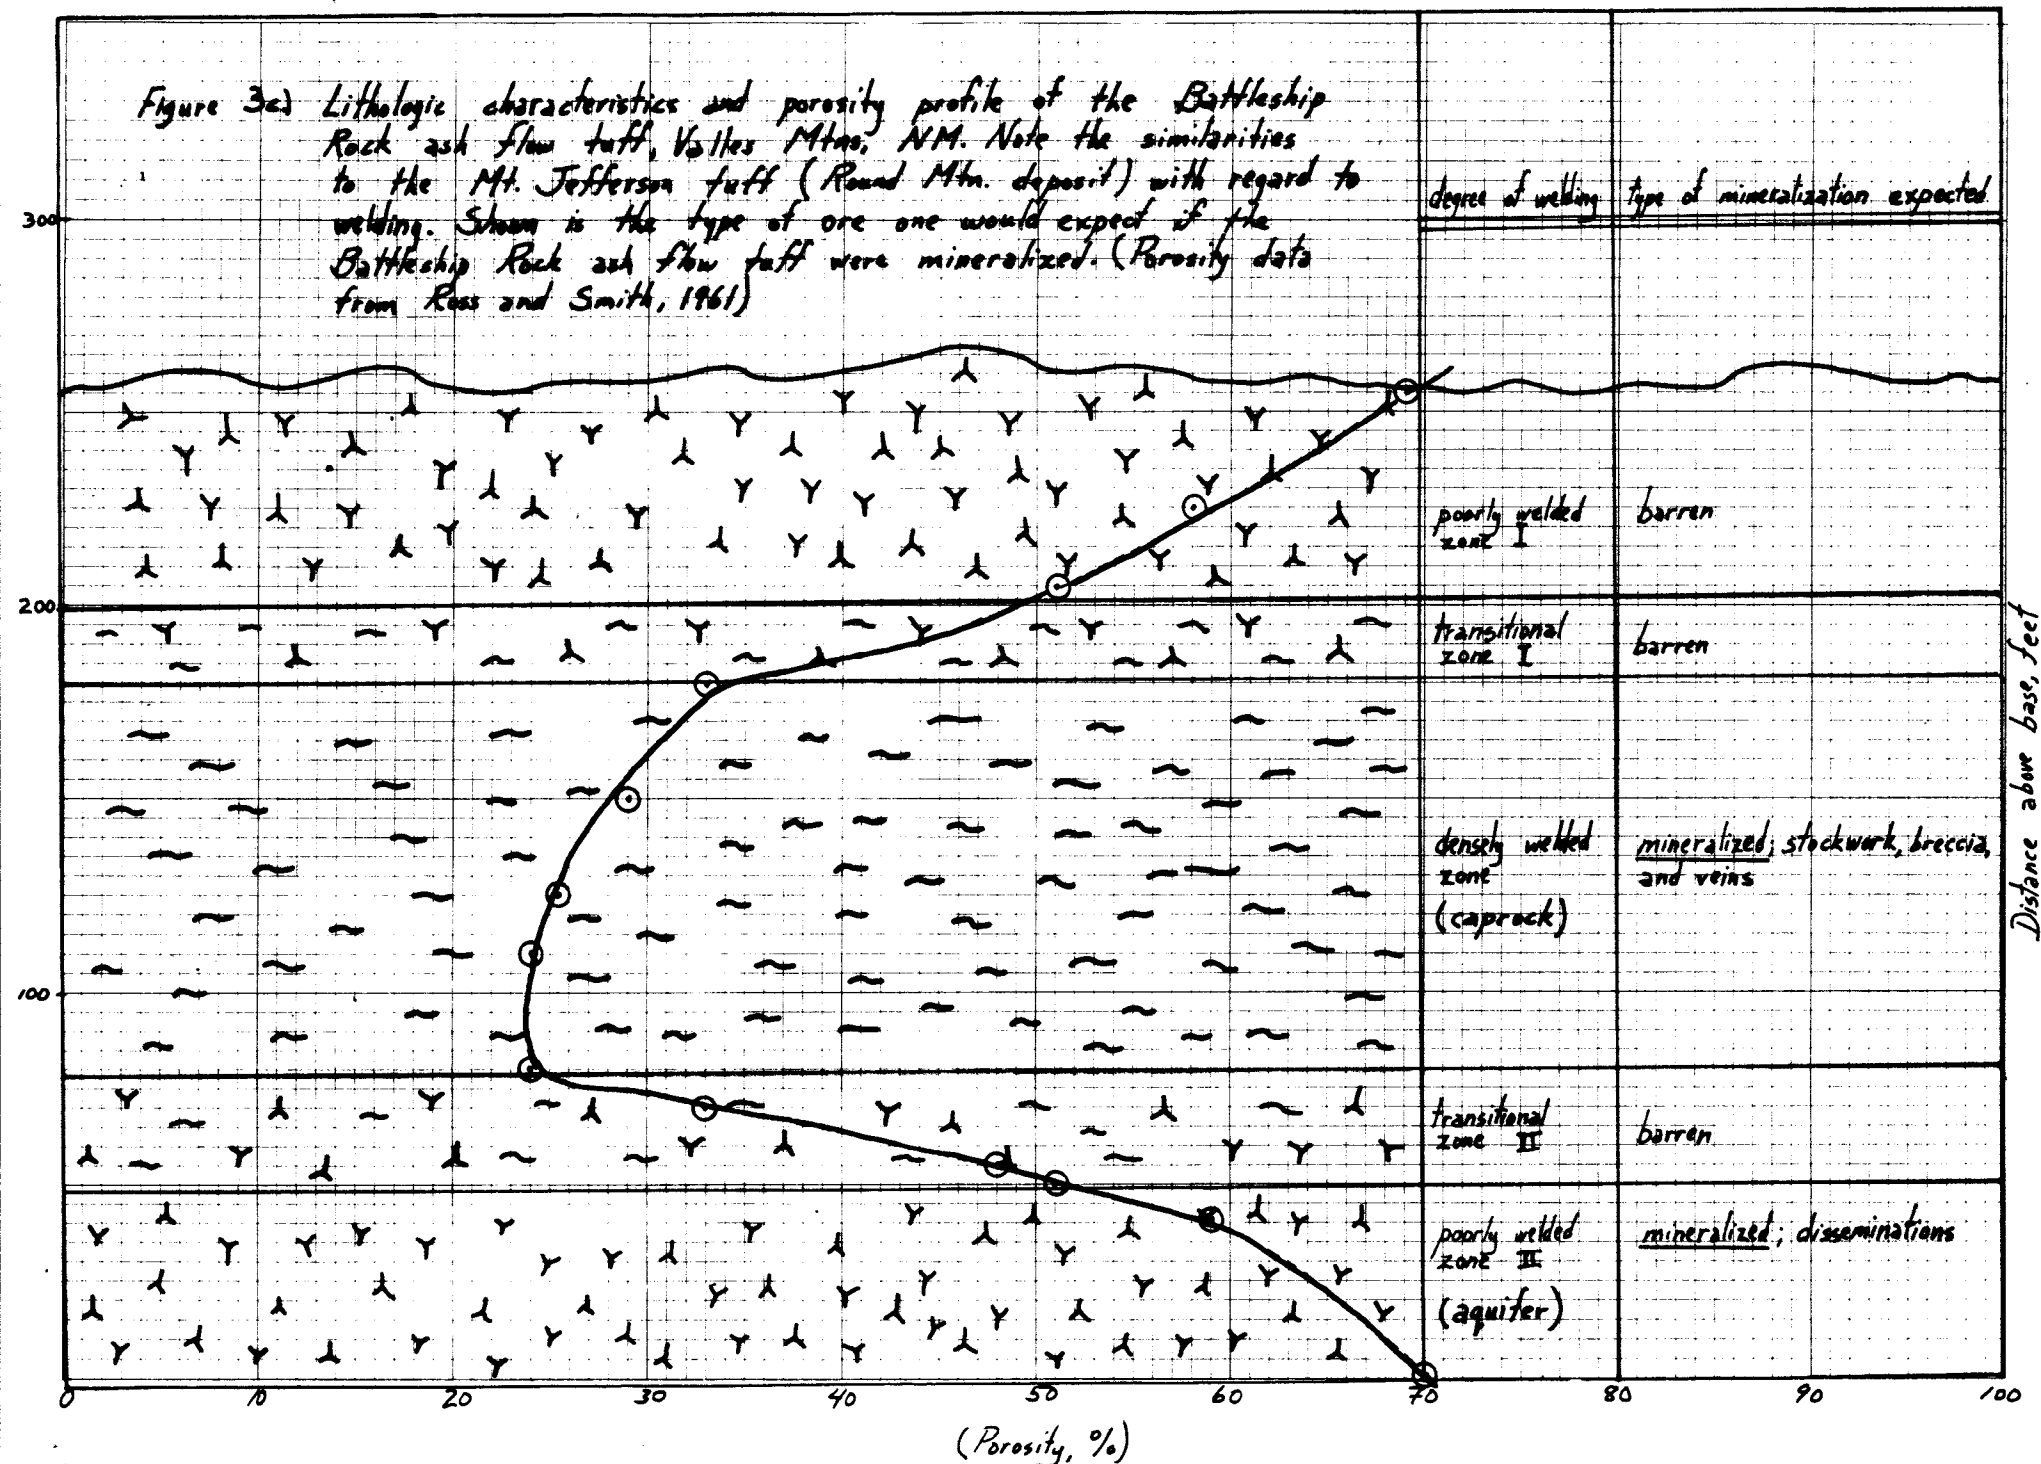 Figure 3c) Lithologic characteristics and porosity profile of the Battleship
Rock ash flow tuff, Valles Mtns, NM. Note the similarities
to the Mt. Jefferson tuff (Round Mtn. deposit) with regard to
welding. Shown is the type of ore one would expect if the
Battleship Rock ash flow tuff were mineralized. (Porosity data
from Ross and Smith, 1961)
degree of welding
type of mineralization expected
300
200
100
poorly welded
zone I
barren
transitional
zone I
barren
densely welded
zone
(caprock)
mineralized; stockwork, breccia,
and veins
transitional
zone II
barren
poorly welded
zone II
(aquifer)
mineralized; disseminations
Distance above base, feet
0 10 20 30 40 50 60 70 80 90 100
(Porosity, %)